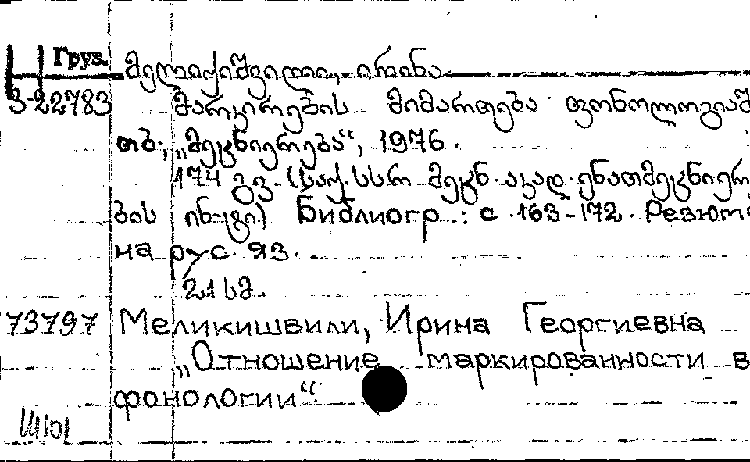 Груз. მელიქიშვილი, ირინა
3-22783 მარკირების მიმართება ფონოლოგიაშ
თბ., „მეცნიერება“, 1976.
174 გვ. (საქ. სსრ მეცნ. აკად. ენათმეცნიერ
ბის ინ-ტი) Библиогр.: с. 163-172. Резюм
на рус. яз.
21 სმ.
73797 Меликишвили, Ирина Георгиевна
„Отношение маркированности в
фонологии“